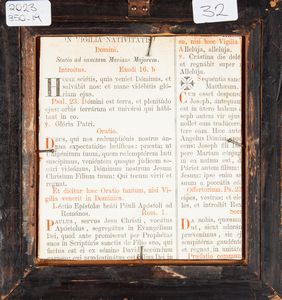 2023
350-14
32
IN VIGILIA NATIVITATIS
Domini.
Statio ad sanctam Mariam Majorem.
Introitus. Exodi 16. b
Hódie sciétis, quia véniet Dóminus, et
salvábit nos: et mane vidébitis gló-
riam ejus.
Psal. 23. Dómini est terra, et plenitúdo
ejus: orbis terrárum et univérsi qui hábi-
tant in eo.
℣. Glória Patri.
Oratio.
Deus, qui nos redemptiónis nostræ án-
nua expectatióne lætíficas: præsta; ut
Unigénitum tuum, quem redemptórem læti
suscípimus, veniéntem quoque júdicem se-
cúri videámus, Dóminum nostrum Jesum
Christum Fílium tuum: Qui tecum vivit et
regnat.
Et dicitur hæc Oratio tantum, nisi Vi-
gilia venerit in Dominica.
Léctio Epístolæ beáti Pauli Apóstoli ad
Romános. Rom. 1.
Paulus, servus Jesu Christi, vocátus
Apóstolus, segregátus in Evangélium
Dei, quod ante promíserat per Prophétas
suos in Scriptúris sanctis de Fílio suo, qui
factus est ei ex sémine David secúndum
su, nisi hoc Vigilia
Allelúja, allelúja.
℣. Crástina die dele
et regnábit super
Allelúja.
✠ Sequéntia sanc
Matthæum.
Cum esset despons
Joseph, ántequam
est in útero habens
seph autem vir ejus
nollet eam tradúcere
tere eam. Hæc aute
Angelus Dómini
Joseph fili
re Maríam cónjug
in ea natum est,
páriet autem fílium
Jesum: ipse enim s
suum a peccátis eó
Offertorium. Ps. 23
cípes, vestras: et ele
les, et introíbit Rex
Da nobis, quæsumu
ut, sicut adoránd
prævenímus, sic
sempitérna gaudént
et regnat in unitáte
Præfatio commun